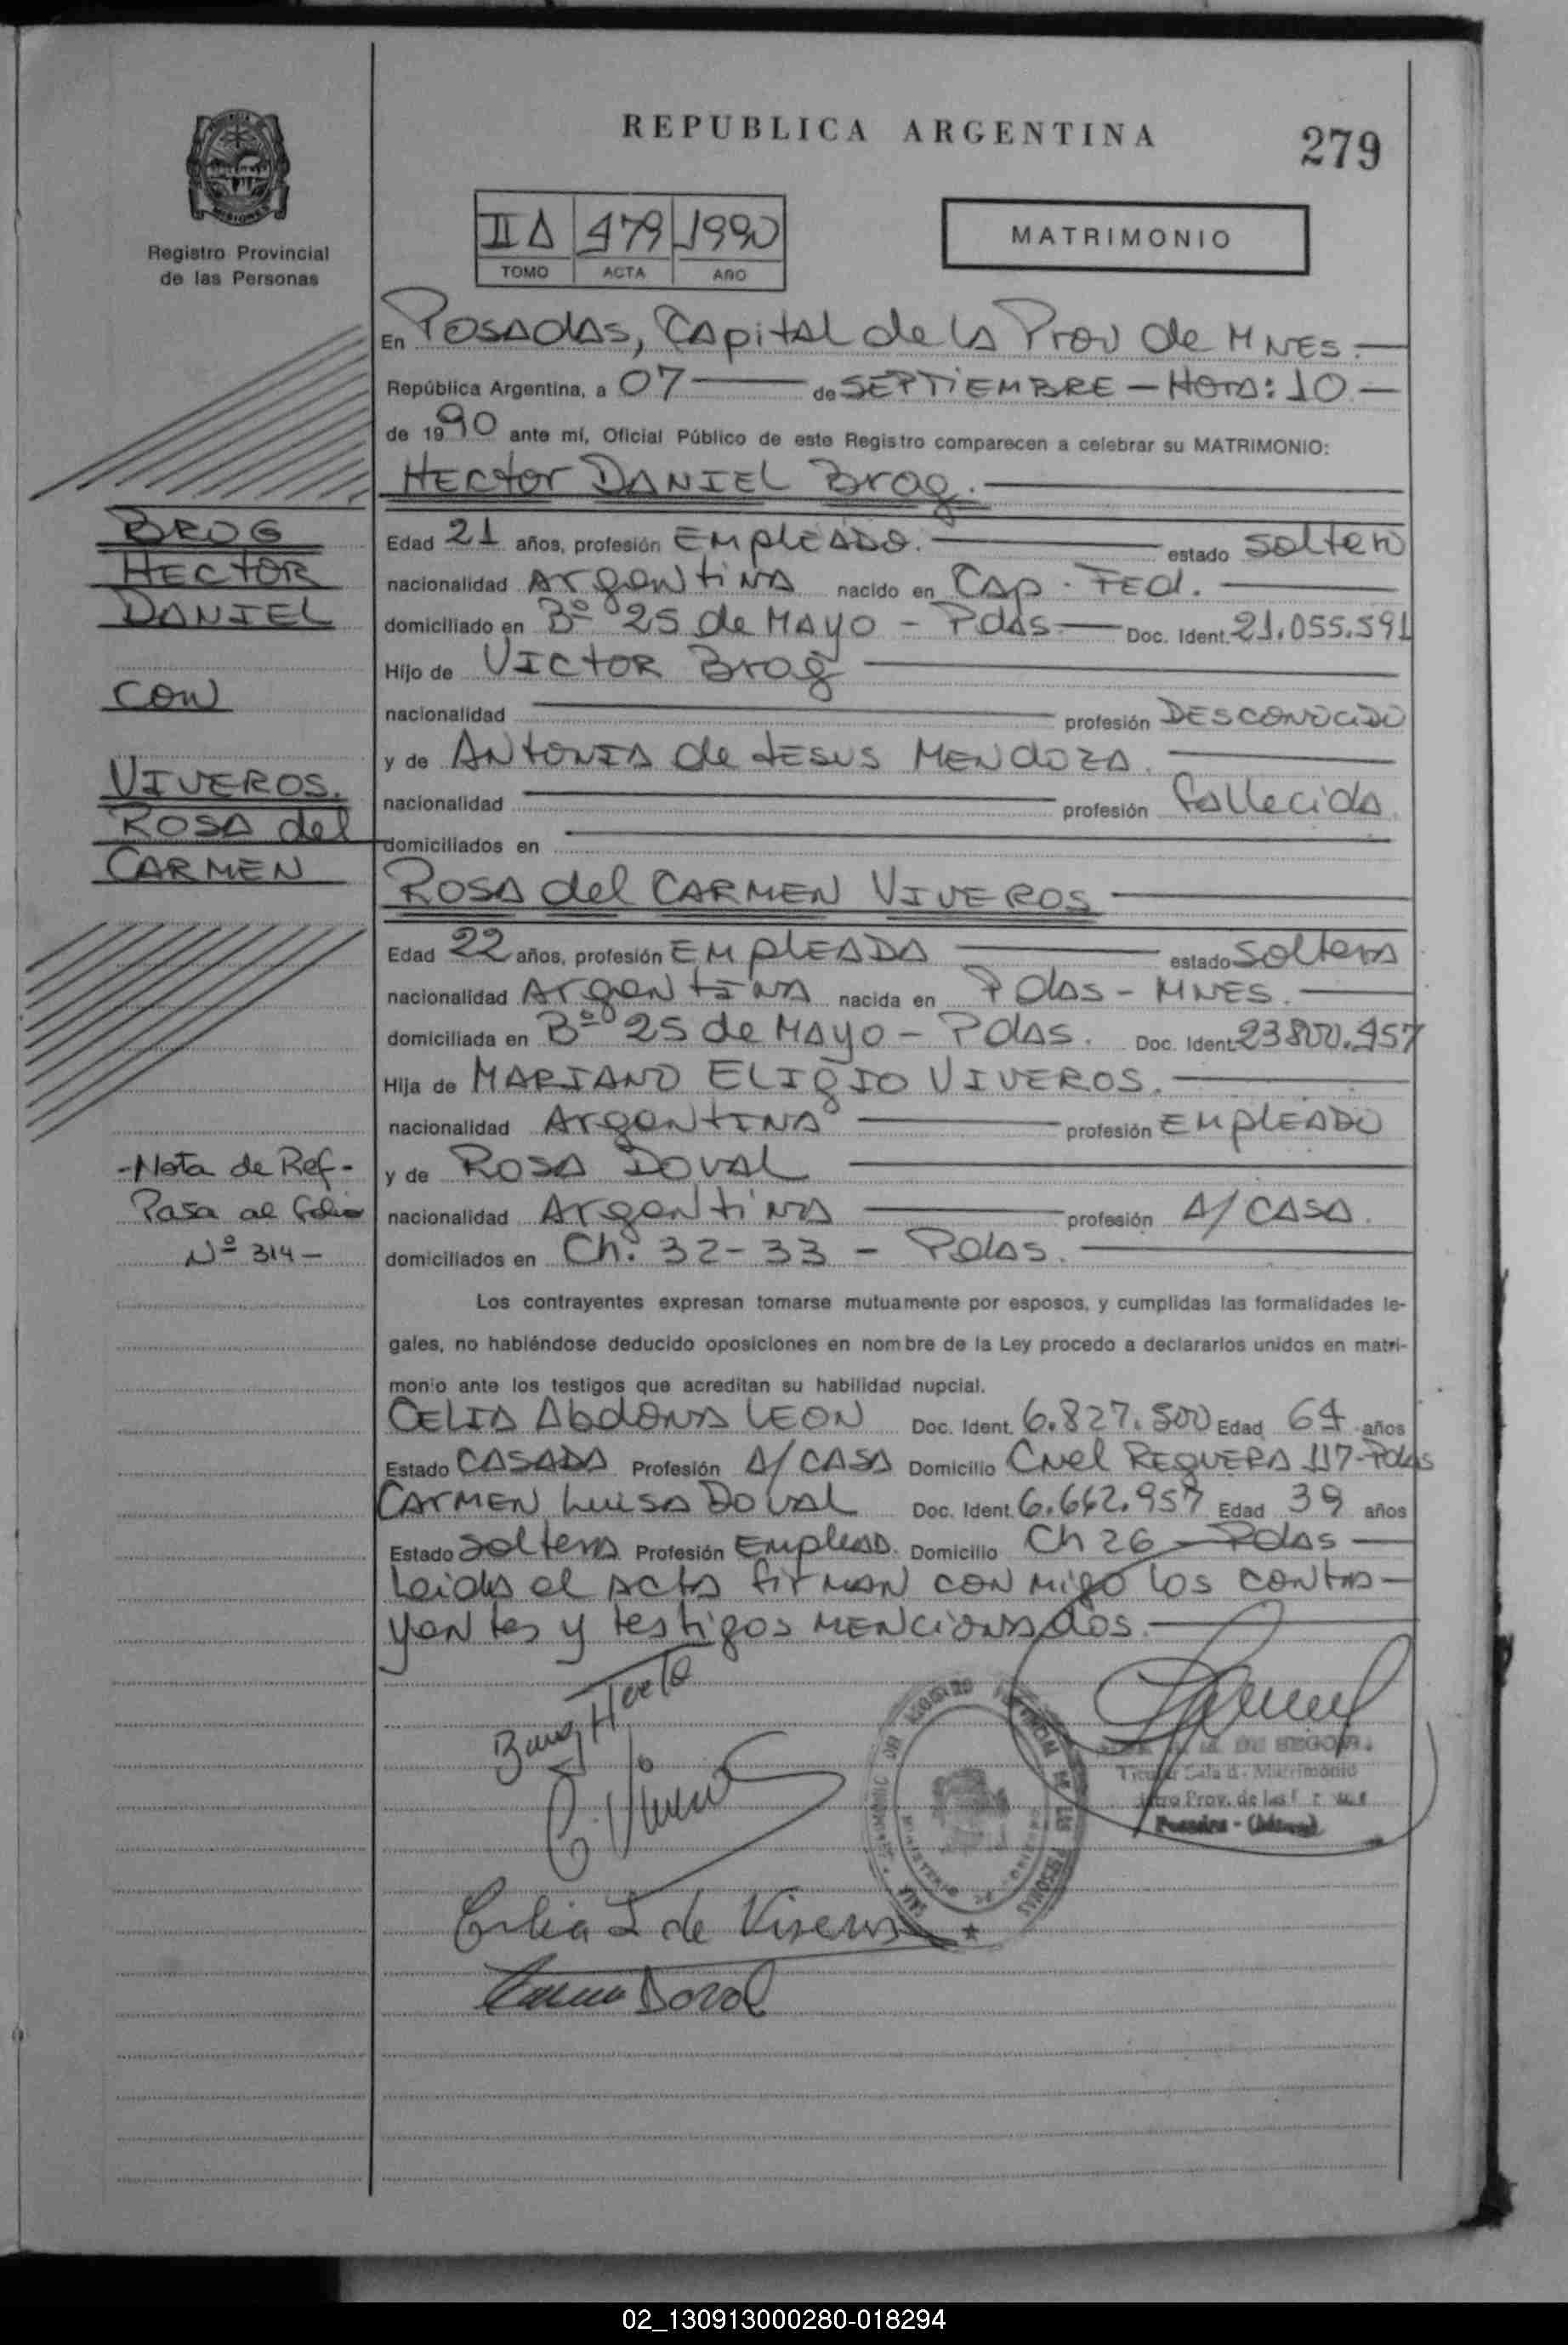 REPUBLICA ARGENTINA
279
MISIONES
Registro Provincial
de las Personas
II A 479 1990
TOMO ACTA AÑO
MATRIMONIO
En Posadas, Capital de la Prov de MNES.
República Argentina, a 07 de SEPTIEMBRE - Hora: 10
de 1990 ante mí, Oficial Público de este Registro comparecen a celebrar su MATRIMONIO:
HECtor DANIEL Brag.
BROG
HECTOR
DANIEL
CON
VIVEROS.
ROSA del
CARMEN
Edad 21 años, profesión EMPLEADO. estado soltero
nacionalidad Argentina nacido en Cap. FEd.
domiciliado en Bº 25 de MAYO - Pdas Doc. Ident. 21.055.591
Hijo de VICTOR Brag
nacionalidad profesión DESCONOCIDO
y de ANTONIA de JESUS MENDOZA.
nacionalidad profesión fallecida.
domiciliados en
ROSA del CARMEN VIVEROS
Edad 22 años, profesión EMPLEADA estado soltera
nacionalidad Argentina nacida en Pdas - MNES.
domiciliada en Bº 25 de MAYO - Pdas. Doc. Ident. 23800.457
Hija de MARIANO ELIGIO VIVEROS.
nacionalidad Argentina profesión EMPLEADO
y de ROSA DOVAL
nacionalidad Argentina profesión A/CASA.
domiciliados en Ch. 32-33 - Pdas.
-Nota de Ref-
Pasa al folio
Nº 314-
Los contrayentes expresan tomarse mutuamente por esposos, y cumplidas las formalidades le-
gales, no habiéndose deducido oposiciones en nombre de la Ley procedo a declararlos unidos en matri-
monio ante los testigos que acreditan su habilidad nupcial.
CELIA Abdona LEON Doc. Ident. 6.827.500 Edad 64 años
Estado CASADA Profesión A/CASA Domicilio Cnel REGUERA 117-Pdas
CARMEN LUISA DOVAL Doc. Ident. 6.662.957 Edad 39 años
Estado Soltera Profesión Emplead. Domicilio Ch 26 - Pdas
Leida el acta firman conmigo los contra-
yentes y testigos MENCIONADOS.
Celia L de Viveros
Doval
DE SEGOVIA
02_130913000280-018294